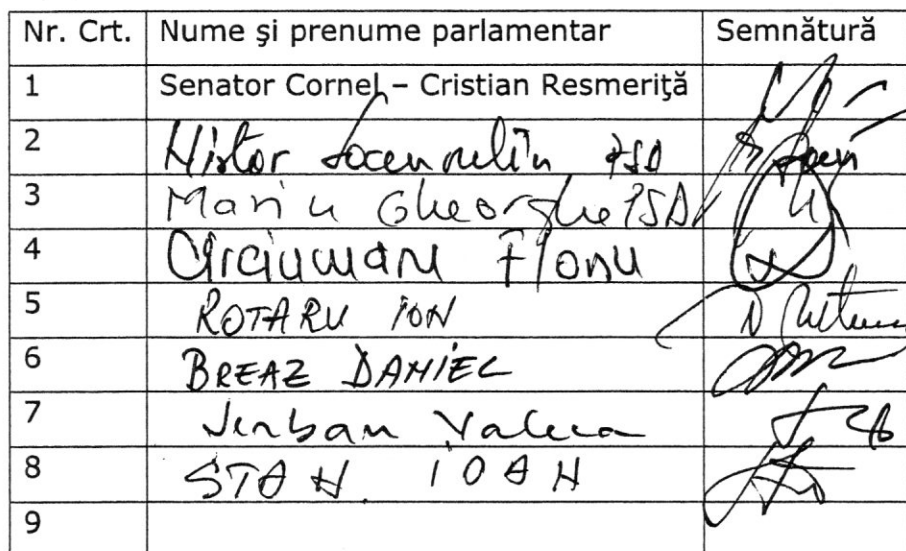 Nr. Crt. Nume şi prenume parlamentar Semnătură
1 Senator Cornel – Cristian Resmeriţă
2 PSD
3 Marin Gheorghe PSD
4 Circiumaru Florin
5 ROTARU ION
6 BREAZ DANIEL
7 Serban Valeca
8 STAN IOAN
9